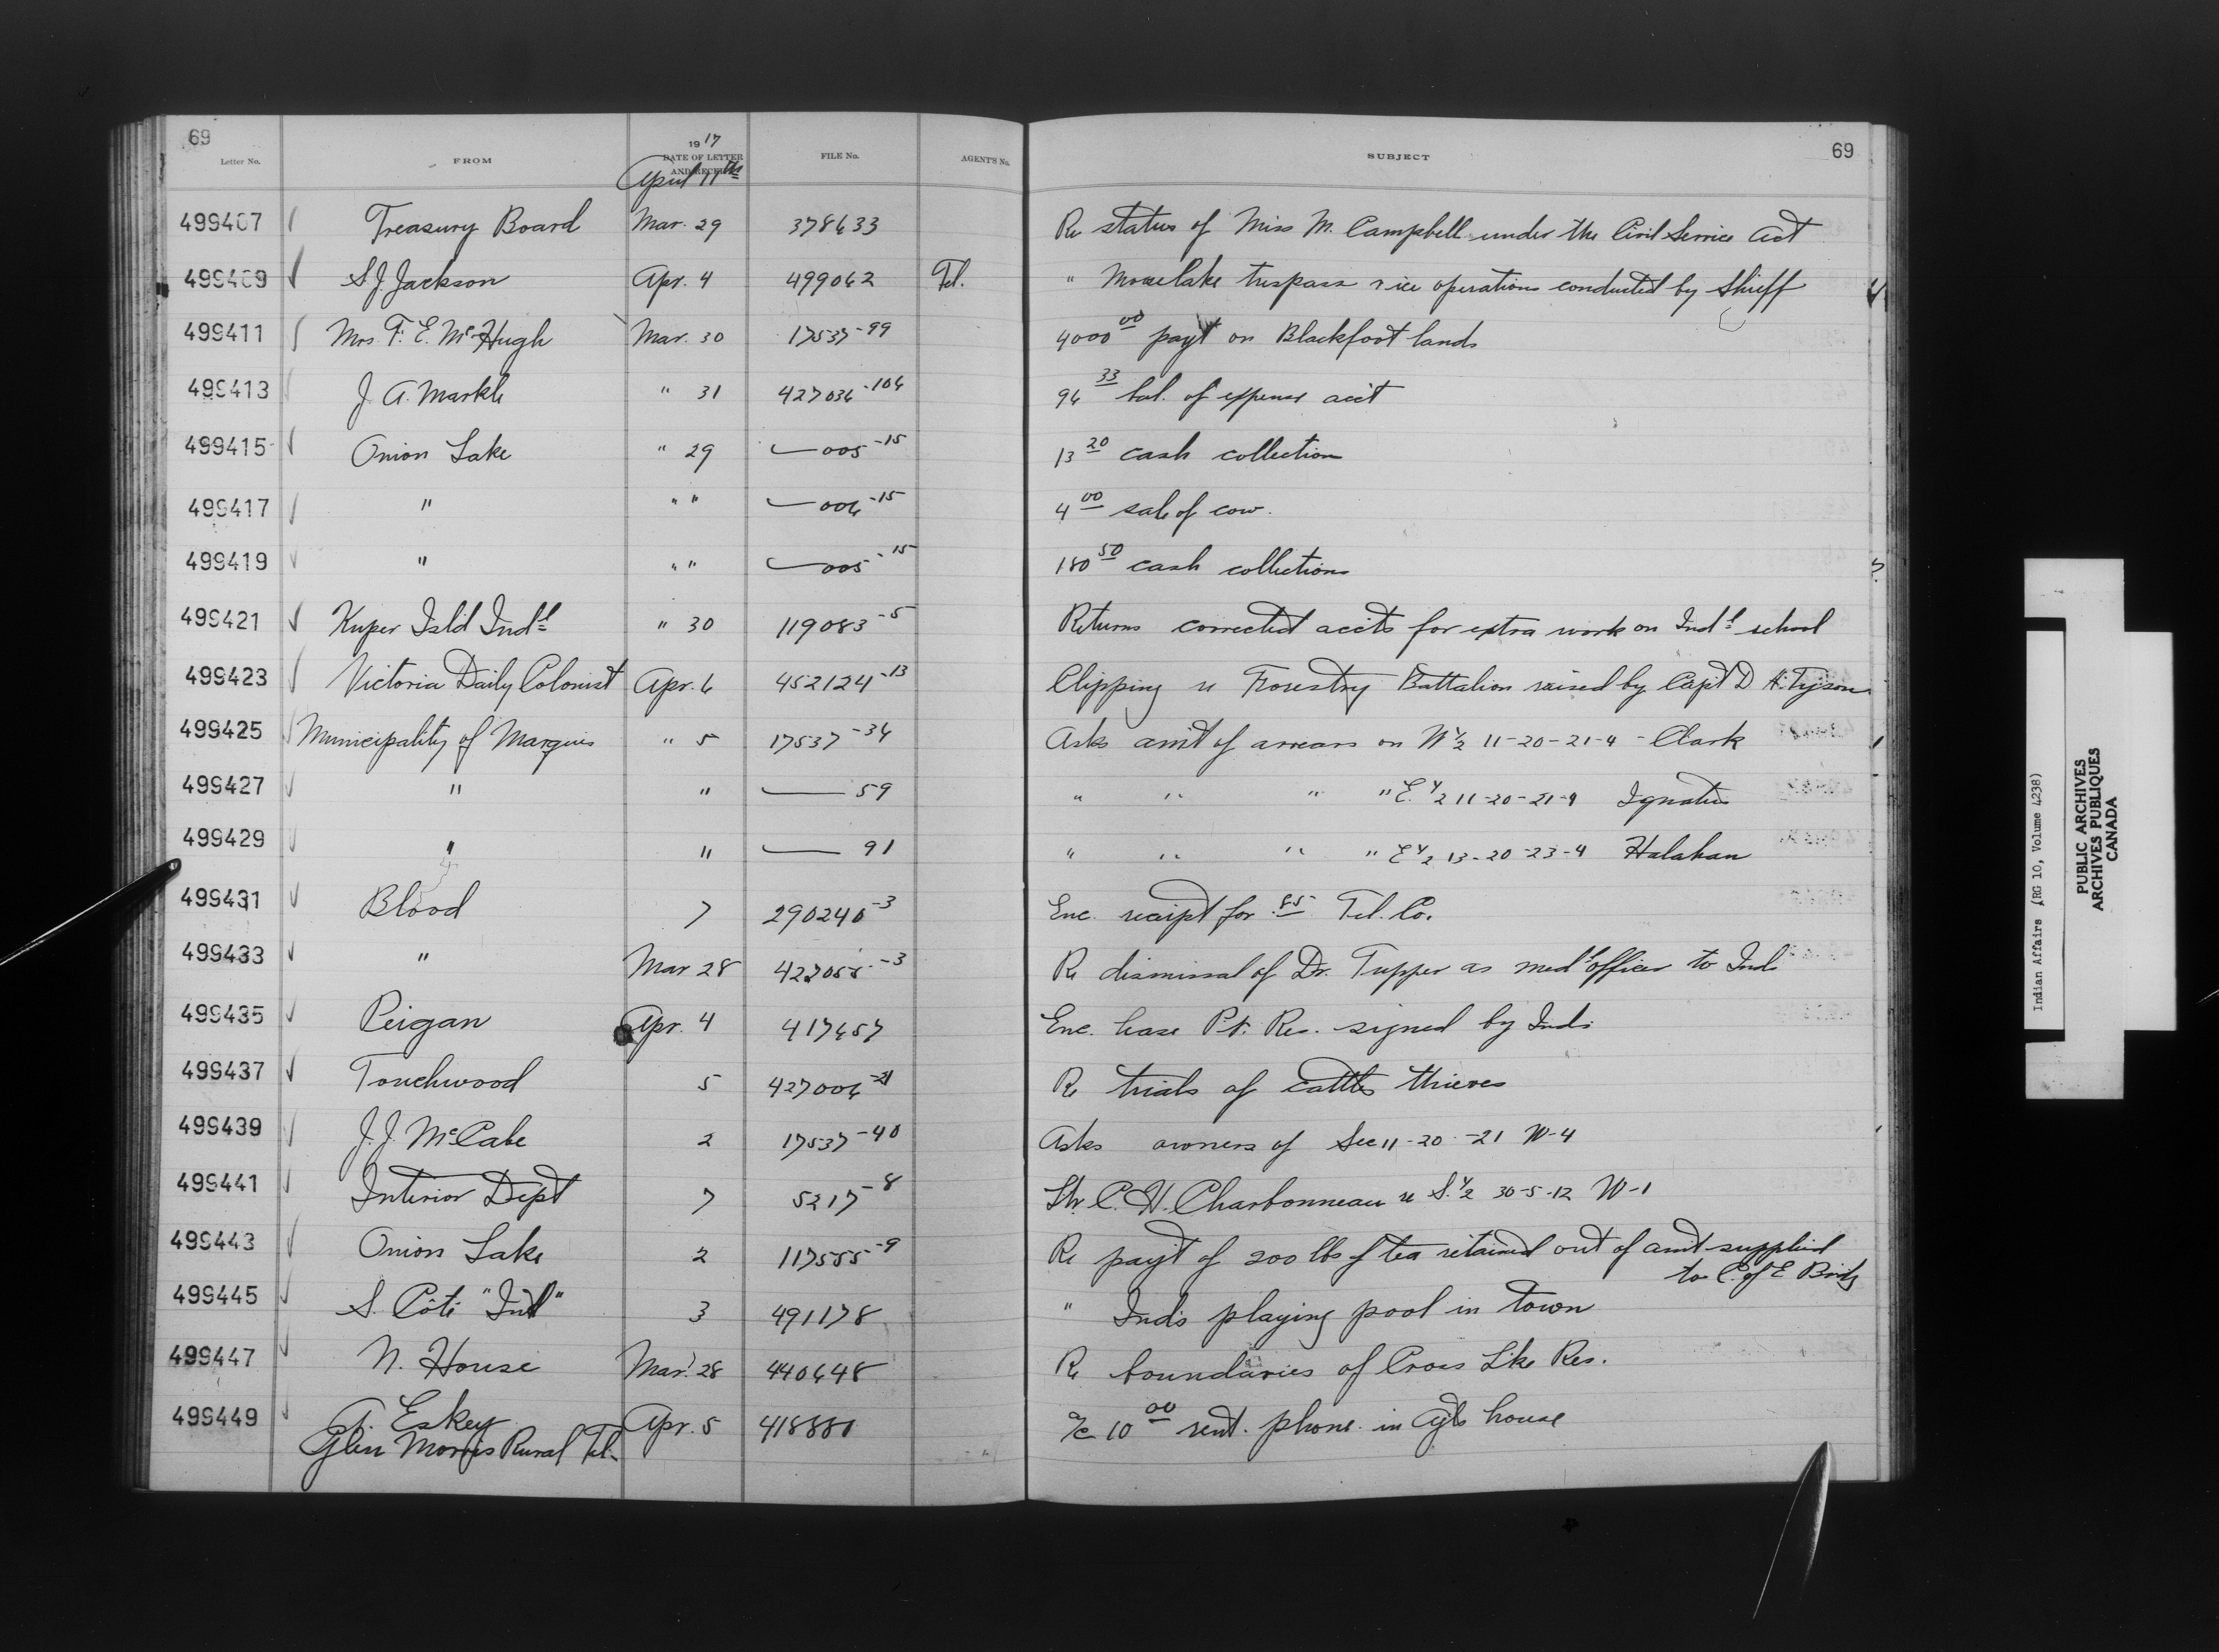 69
Letter No. FROM 1917 DATE OF LETTER AND RECEIPT FILE No. AGENT'S No. SUBJECT 69
April 11th
499407 Treasury Board Mar. 29 378633 Re status of Miss M. Campbell under the Civil Service Act
499409 S.J. Jackson Apr. 4 499062 Tel. " Mooselake trespass & ice operations conducted by
499411 Mrs. F. E. McHugh Mar. 30 17537-99 4000 00 payt on Blackfoot lands
499413 J. A. Markle " 31 427036-104 96 33 bal. of expense acct
499415 Onion Lake " 29 — 005-15 13 20 cash collection
499417 " " " — 006-15 4 00 sale of cow.
499419 " " " — 005-15 180 50 cash collections
499421 Kuper Isld Indl " 30 119083-5 Returns corrected accts for extra work on Indl school
499423 Victoria Daily Colonist Apr. 6 452124-13 Clipping re Forestry Battalion raised by Capt D. H. Tyson
499425 Municipality of Marquis " 5 17537-34 Asks amt of arrears on W½ 11-20-21-4 - Clark
499427 " " — 59 " " " " E.½ 11-20-21-4 Ignatius
499429 " " — 91 " " " " E½ 13-20-23-4 Halahan
499431 Blood 7 290240-3 Enc. receipt for .85 Tel. Co.
499433 " Mar 28 -3 Re dismissal of Dr. Tupper as medl officer to Inds
499435 Peigan Apr. 4 417657 Enc. lease Res. signed by Inds.
499437 Touchwood 5 427006-21 Re trials of cattle thieves
499439 J.J. McCabe 2 17537-40 Asks owners of Sec 11-20-21 W-4
499441 Interior Dept 7 5217-8 Ltr. C. H. Charbonneau re S.½ 30-5-12 W-1
499443 Onion Lake 2 117555-9 Re payt of 200 lbs of tea retained out of amt supplied
to C. of E. Brdg
499445 S. Côté "Ind" 3 491178 " Inds playing pool in town
499447 N. House Mar. 28 440648 Re boundaries of Cross Lke Res.
499449 A. Eskey Apr. 5 418881 a/c 10 00 rent. phone in Agts house
Glen Morris Rural Tel.
Indian Affairs (RG 10, Volume 4238)
PUBLIC ARCHIVES
ARCHIVES PUBLIQUES
CANADA